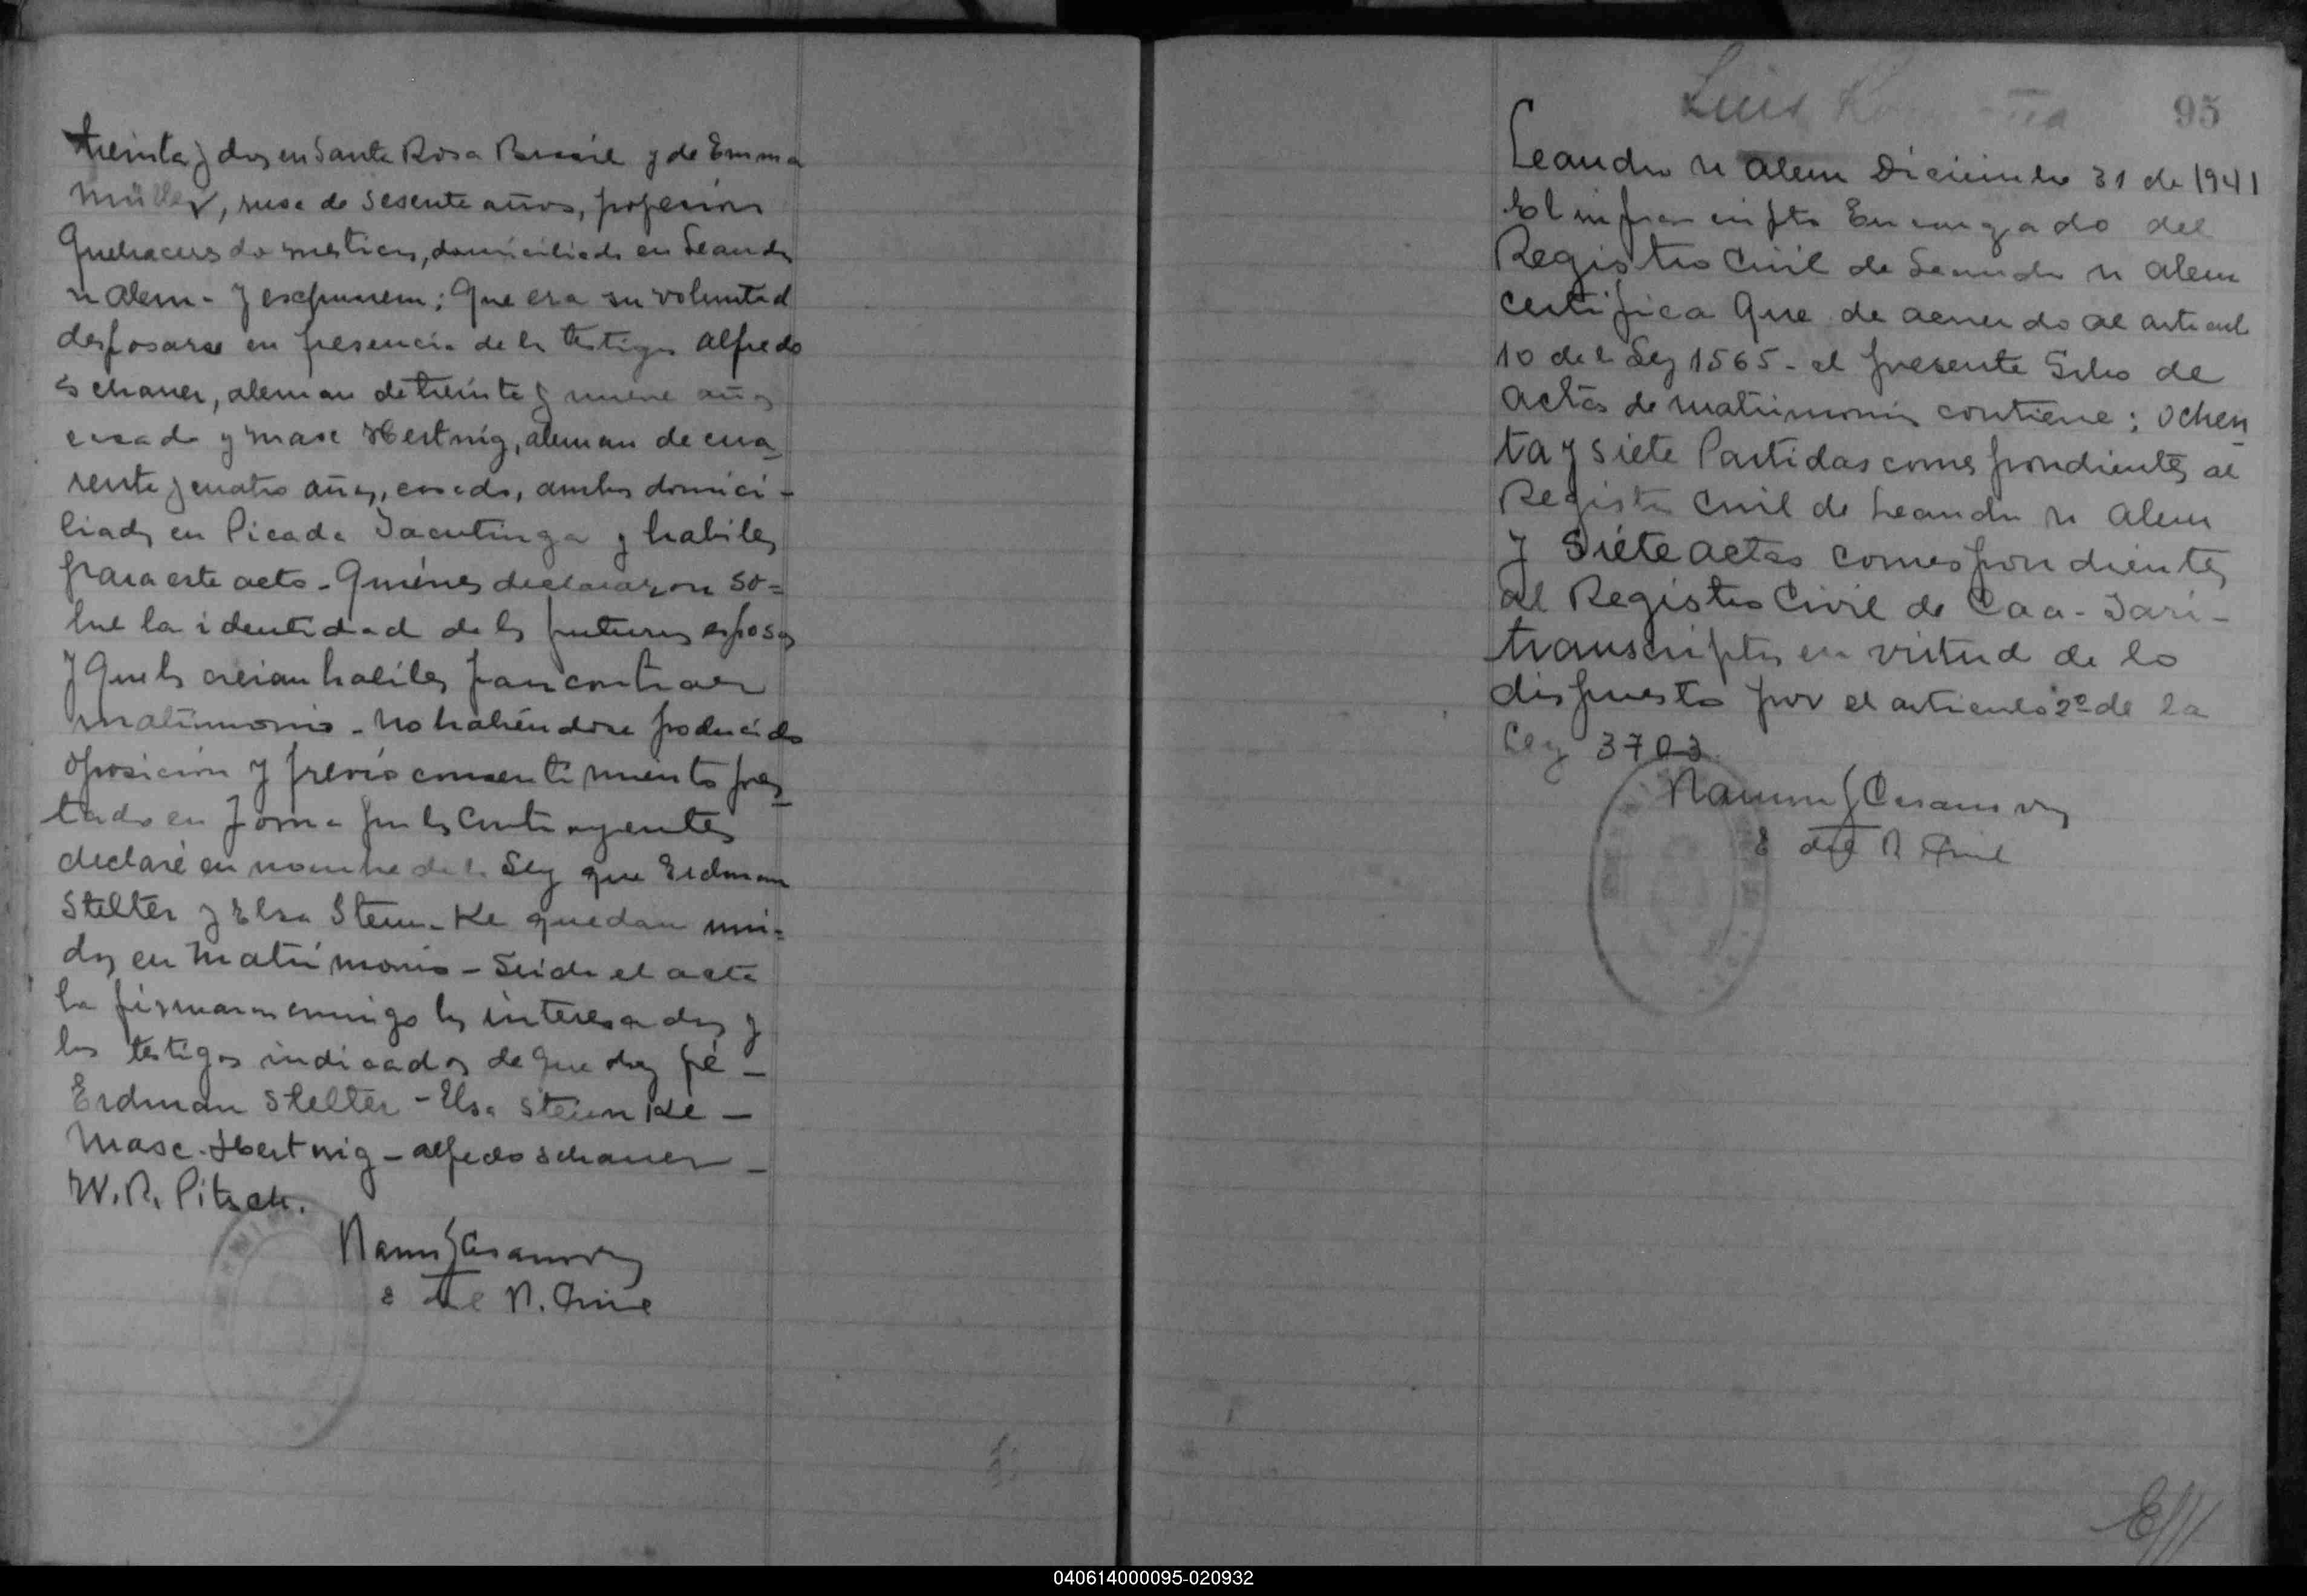 treinta y dos en Santa Rosa Brasil y de Emma
Müller, rusa de sesenta años, profesión
Quehaceres domesticos, domiciliada en Leandro
N Alem - y expusieron: Que era su voluntad
desposarse en presencia de los testigos Alfredo
Schaner, aleman de treinta y nueve años
casado y Maxe Hertwig, aleman de cua_
renta y cuatro años, casado, ambos domici-
liados en Picada Yacutinga y habiles
para este acto - Quiénes declararon so=
bre la identidad de los futuros esposos
y que los creian habiles para contraer
matrimonio - No habiéndose producido
oposición y previo consentimiento pres_
tado en forma por los contrayentes
declaré en nombre de la Ley que Erdman
Stelter y Elsa Stein-Ke quedan uni=
dos en Matrimonio - Leida el acta
la firmaron conmigo los interesados y
los testigos indicados de que doy fé -
Erdman Stelter - Elsa Steinnke -
Maxe Hertwig - Alfredo Schaner -
W. R. Pitsch.
Casanova
E del R. Civil
Luis
95
Leandro N Alem Diciembre 31 de 1941
El infrascripto Encargado del
Registro Civil de Leandro N Alem
certifica Que de acuerdo al articulo
10 de la Ley 1565 - el presente Libro de
actas de matrimonios contiene; ochen_
ta y siete Partidas correspondientes al
Registro Civil de Leandro N Alem
y Siéte actas correspondientes
al Registro Civil de Caa-Yari-
transcriptas en virtud de lo
dispuesto por el articulo 2º de la
Ley 3703.
Casanova
E del R Civil
040614000095-020932